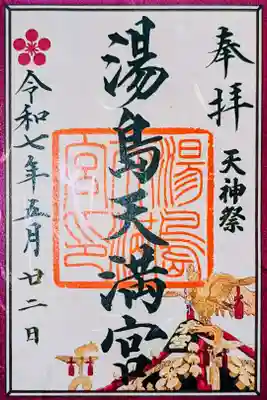 奉拝
天神祭
湯島天満宮
湯島
天満
宮印
令和七年五月廿二日